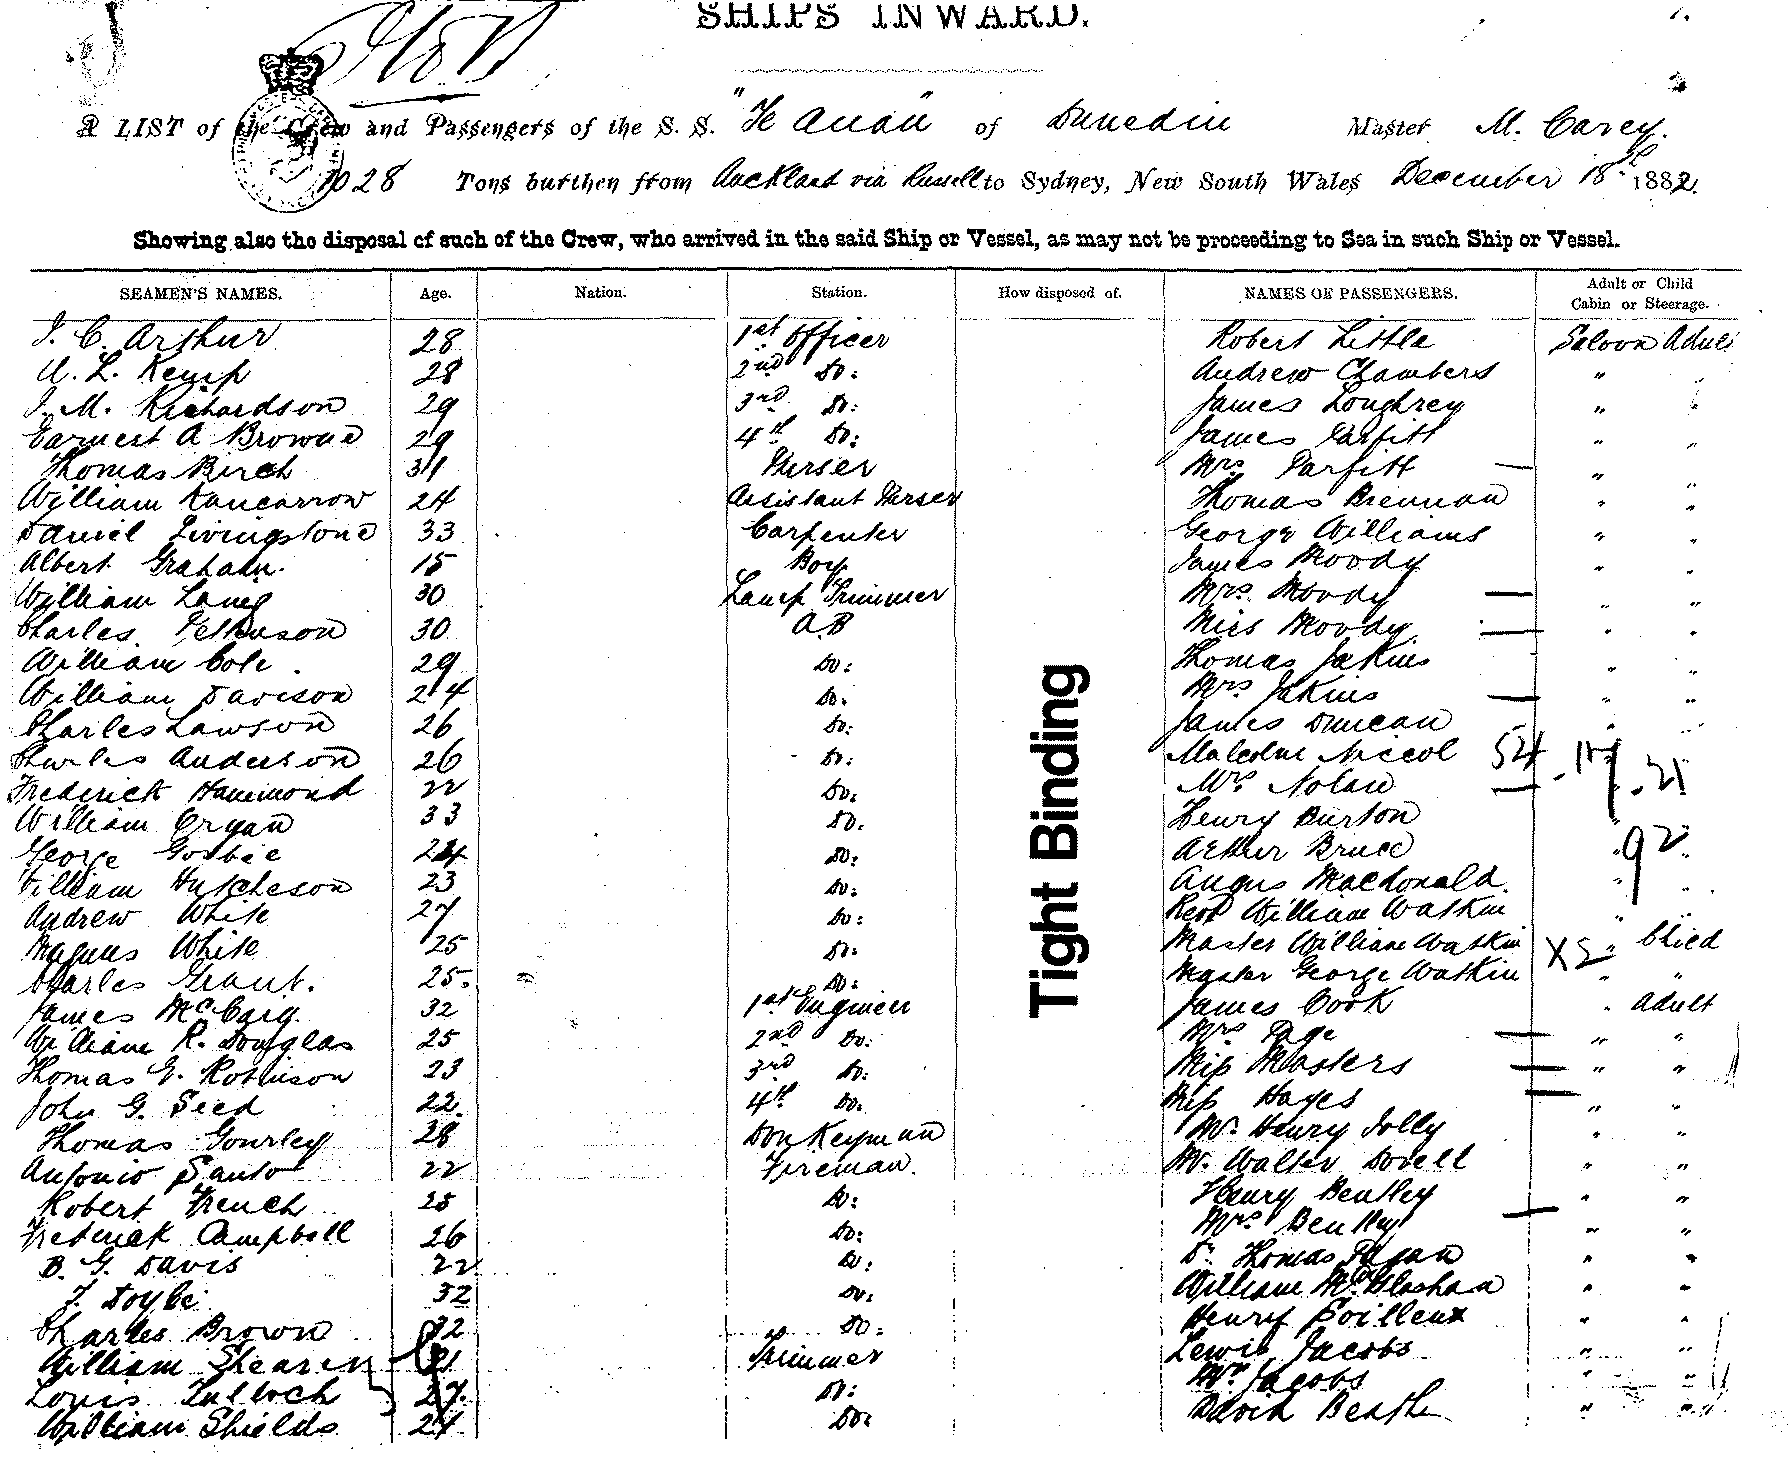 SHIPS INWARD.
A LIST of the Crew and Passengers of the S. S. "Te Anau" of Dunedin Master M. Carey.
1028 Tons burthen from Auckland via Russell to Sydney, New South Wales December 18th 1882.
Showing also the disposal of such of the Crew, who arrived in the said Ship or Vessel, as may not be proceeding to Sea in such Ship or Vessel.
SEAMEN'S NAMES. Age. Nation. Station. How disposed of. NAMES OF PASSENGERS. Adult or Child Cabin or Steerage.
J. C. Arthur 28 1st Officer Robert Little Saloon Adult
A. L. Kemp 28 2nd Do: Andrew Chambers " "
J. M. Richardson 29 3rd Do: James Loughrey " "
Earnest A Browne 29 4th Do: James Parfitt " "
Thomas Birch 31 Purser Mrs Parfitt — " "
William Nancarrow 24 Assistant Purser Thomas Brennan " "
Daniel Livingstone 33 Carpenter George Williams " "
Albert Graham 15 Boy James Moody " "
William Lang 30 Lamp Trimmer Mrs Moody — " "
Charles 30 A.B Miss Moody — " "
William Cole 29 Do: Thomas Jakins " "
William Davison 24 Do: Mrs Jakins — " "
Charles Lawson 26 Do: James Duncan " "
Charles Anderson 26 Do: Malcolm Niccol 54 . 17 . 21
Frederick Hammond 22 Do: Mrs Nolan —
William Cryan 33 Do: Henry Burton "
George Gosbie 24 Do: Arthur Bruce " 92 "
William Hutcheson 23 Do: Angus Macdonald " "
Andrew White 27 Do: Revd William Watkin " "
Magnus White 25 Do: Master William Watkin X2 " Child
Charles Grant. 25. Do: Master George Watkin " "
James McCaig 32 1st Engineer James Cook " Adult
William R. Douglas 25 2nd Do: Mrs Page — " "
Thomas G. Robinson 23 3rd Do: Miss Masters — " "
John G. Seed 22. 4th Do: Miss Hayes — " "
Thomas Gourley 28 Donkeyman Mr Henry Jolly " "
Antonio Santo 22 Fireman. Mr. Walter Dovell " "
Robert French 25 Do: Henry Bentley " "
Frederick Campbell 26 Do: Mrs Bentley — " "
B. G. Davis 22 Do: Dr Thomas " "
J. Doyle 32 Do: William McGlashan " "
Charles Brown 32 Do: Henry Soilleux " "
William Shearin 21 Trimmer Lewis Jacobs " "
Louis Tulloch 27. Do: Mrs Jacobs " "
William Shields 24 Do: David Beath " "
Tight Binding